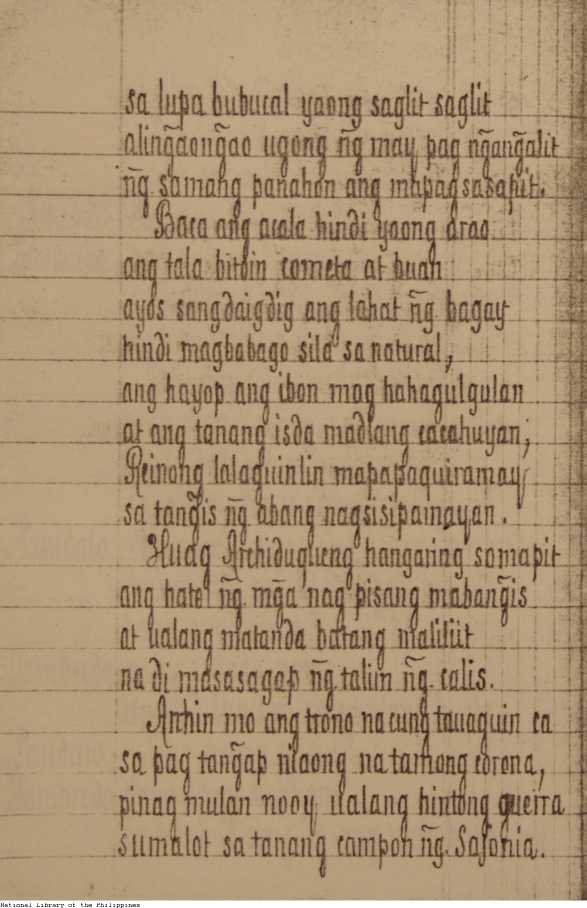 sa lupa bubucal yaong saglit saglit
alingãongão ugong ñg may pag ngangalit
ñg samang panahon ang mapagsasapit.
Baca ang acala hindi yaong arao
ang tala bitoin cometa at buan
ayos sangdaigdig ang lahat ñg bagay
hindi magbabago sila sa natural,
ang hayop ang ibon mag hahagulgulan
at ang tanang isda madlang cacahuyan,
Reinong lalaguinlin mapapaquiramay
sa tangis ñg abang nagsisipamayan.
Huag Archiduqueng hangaring sumapit
ang hatol ñg mga nag pisang mabangis
at ualang matanda batang maliliit
na di masasagap ñg talim ñg calis.
Anhin mo ang trono na cung tauaguin ca
sa pag tangap niaong natamong corona,
pinag mulan nooy, ualang hintong guerra
sumalot sa tanang campon ñg Sajonia.
National Library of the Philippines